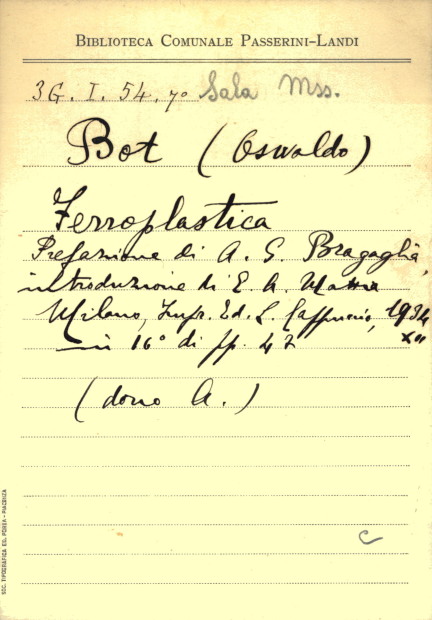 BIBLIOTECA COMUNALE PASSERINI-LANDI
3G. I. 54. 7° Sala Mss.
Bot (Oswaldo)
Ferroplastica
Prefazione di A. G. Bragaglia,
introduzione di E. A.
Milano, Impr. Ed. L. Cappuccio, 1934
in 16° di pp. 47
(dono A.)
C
SOC. TIPOGRAFICA ED. PORTA - PIACENZA